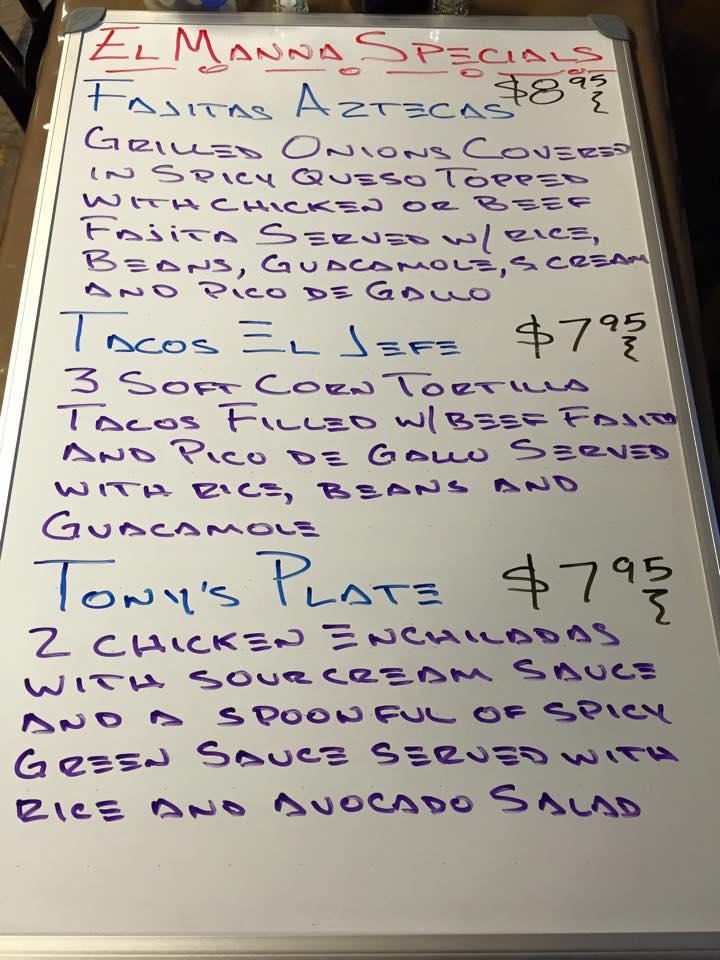 EL MANNA SPECIALS
FAJITAS AZTECAS $8.95
GRILLED ONIONS COVERED
IN SPICY QUESO TOPPED
WITH CHICKEN OR BEEF
FAJITA SERVED W/ RICE,
BEANS, GUACAMOLE, S CREAM
AND PICO DE GALLO
TACOS EL JEFE $7.95
3 SOFT CORN TORTILLA
TACOS FILLED W/ BEEF FAJITA
AND PICO DE GALLO SERVED
WITH RICE, BEANS AND
GUACAMOLE
TONY'S PLATE $7.95
2 CHICKEN ENCHILADAS
WITH SOUR CREAM SAUCE
AND A SPOONFUL OF SPICY
GREEN SAUCE SERVED WITH
RICE AND AVOCADO SALAD